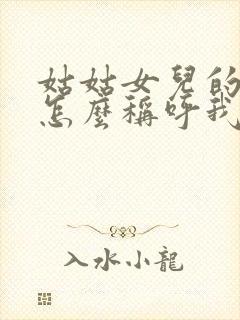 姑姑女兒的
怎麼稱呼我
入水小龍